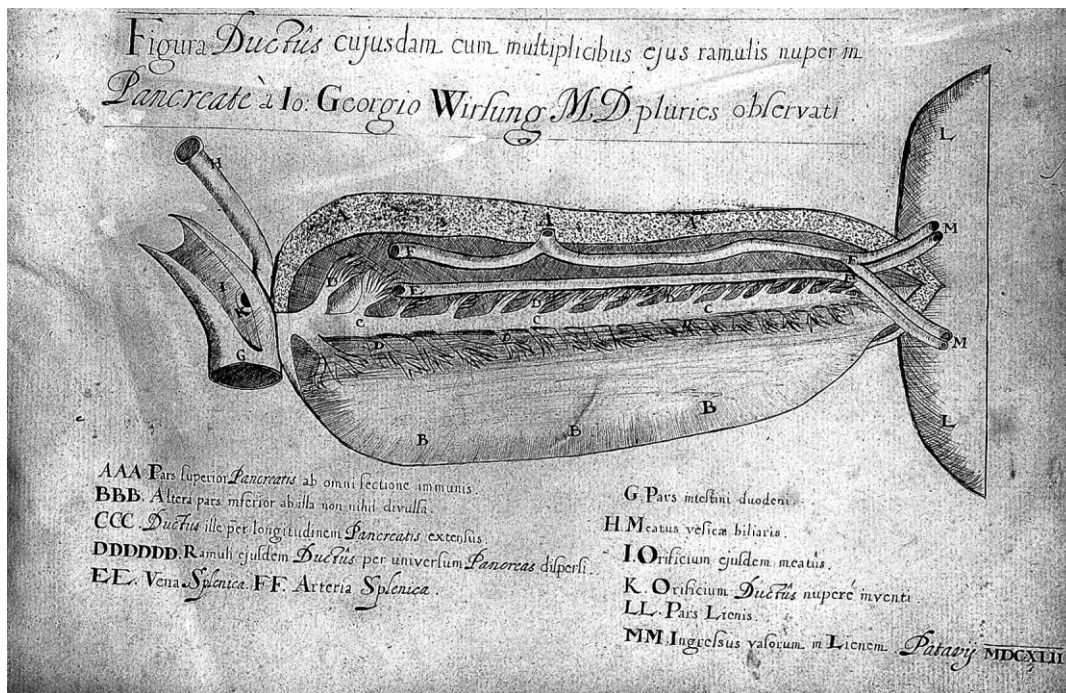 Figura Ductûs cujusdam cum multiplicibus ejus ramulis nuper in
Pancreate à Io: Georgio Wirsung M.D. pluries observati.
H
A
A
I
A
L
M
F
F
I
K
D
E
D
D
E
C
C
C
G
D
D
M
B
B
B
L
AAA Pars superior Pancreatis ab omni sectione immunis.
BBB. Altera pars inferior ab illa non nihil divulsa.
CCC. Ductus ille per longitudinem Pancreatis extensus.
DDDDDD. Ramuli ejusdem Ductûs per universum Pancreas dispersi.
EE. Vena Splenica. FF. Arteria Splenica.
G. Pars intestini duodeni.
H Meatus vesicæ biliaris.
I. Orificium ejusdem meatûs.
K. Orificium Ductûs nuperé inventi.
LL. Pars Lienis.
MM Ingressus vasorum in Lienem. Patavij MDCXLII